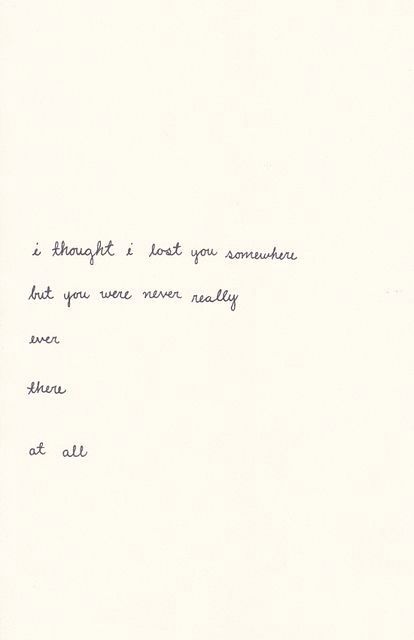 i thought i lost you somewhere
but you were never really
ever
there
at all